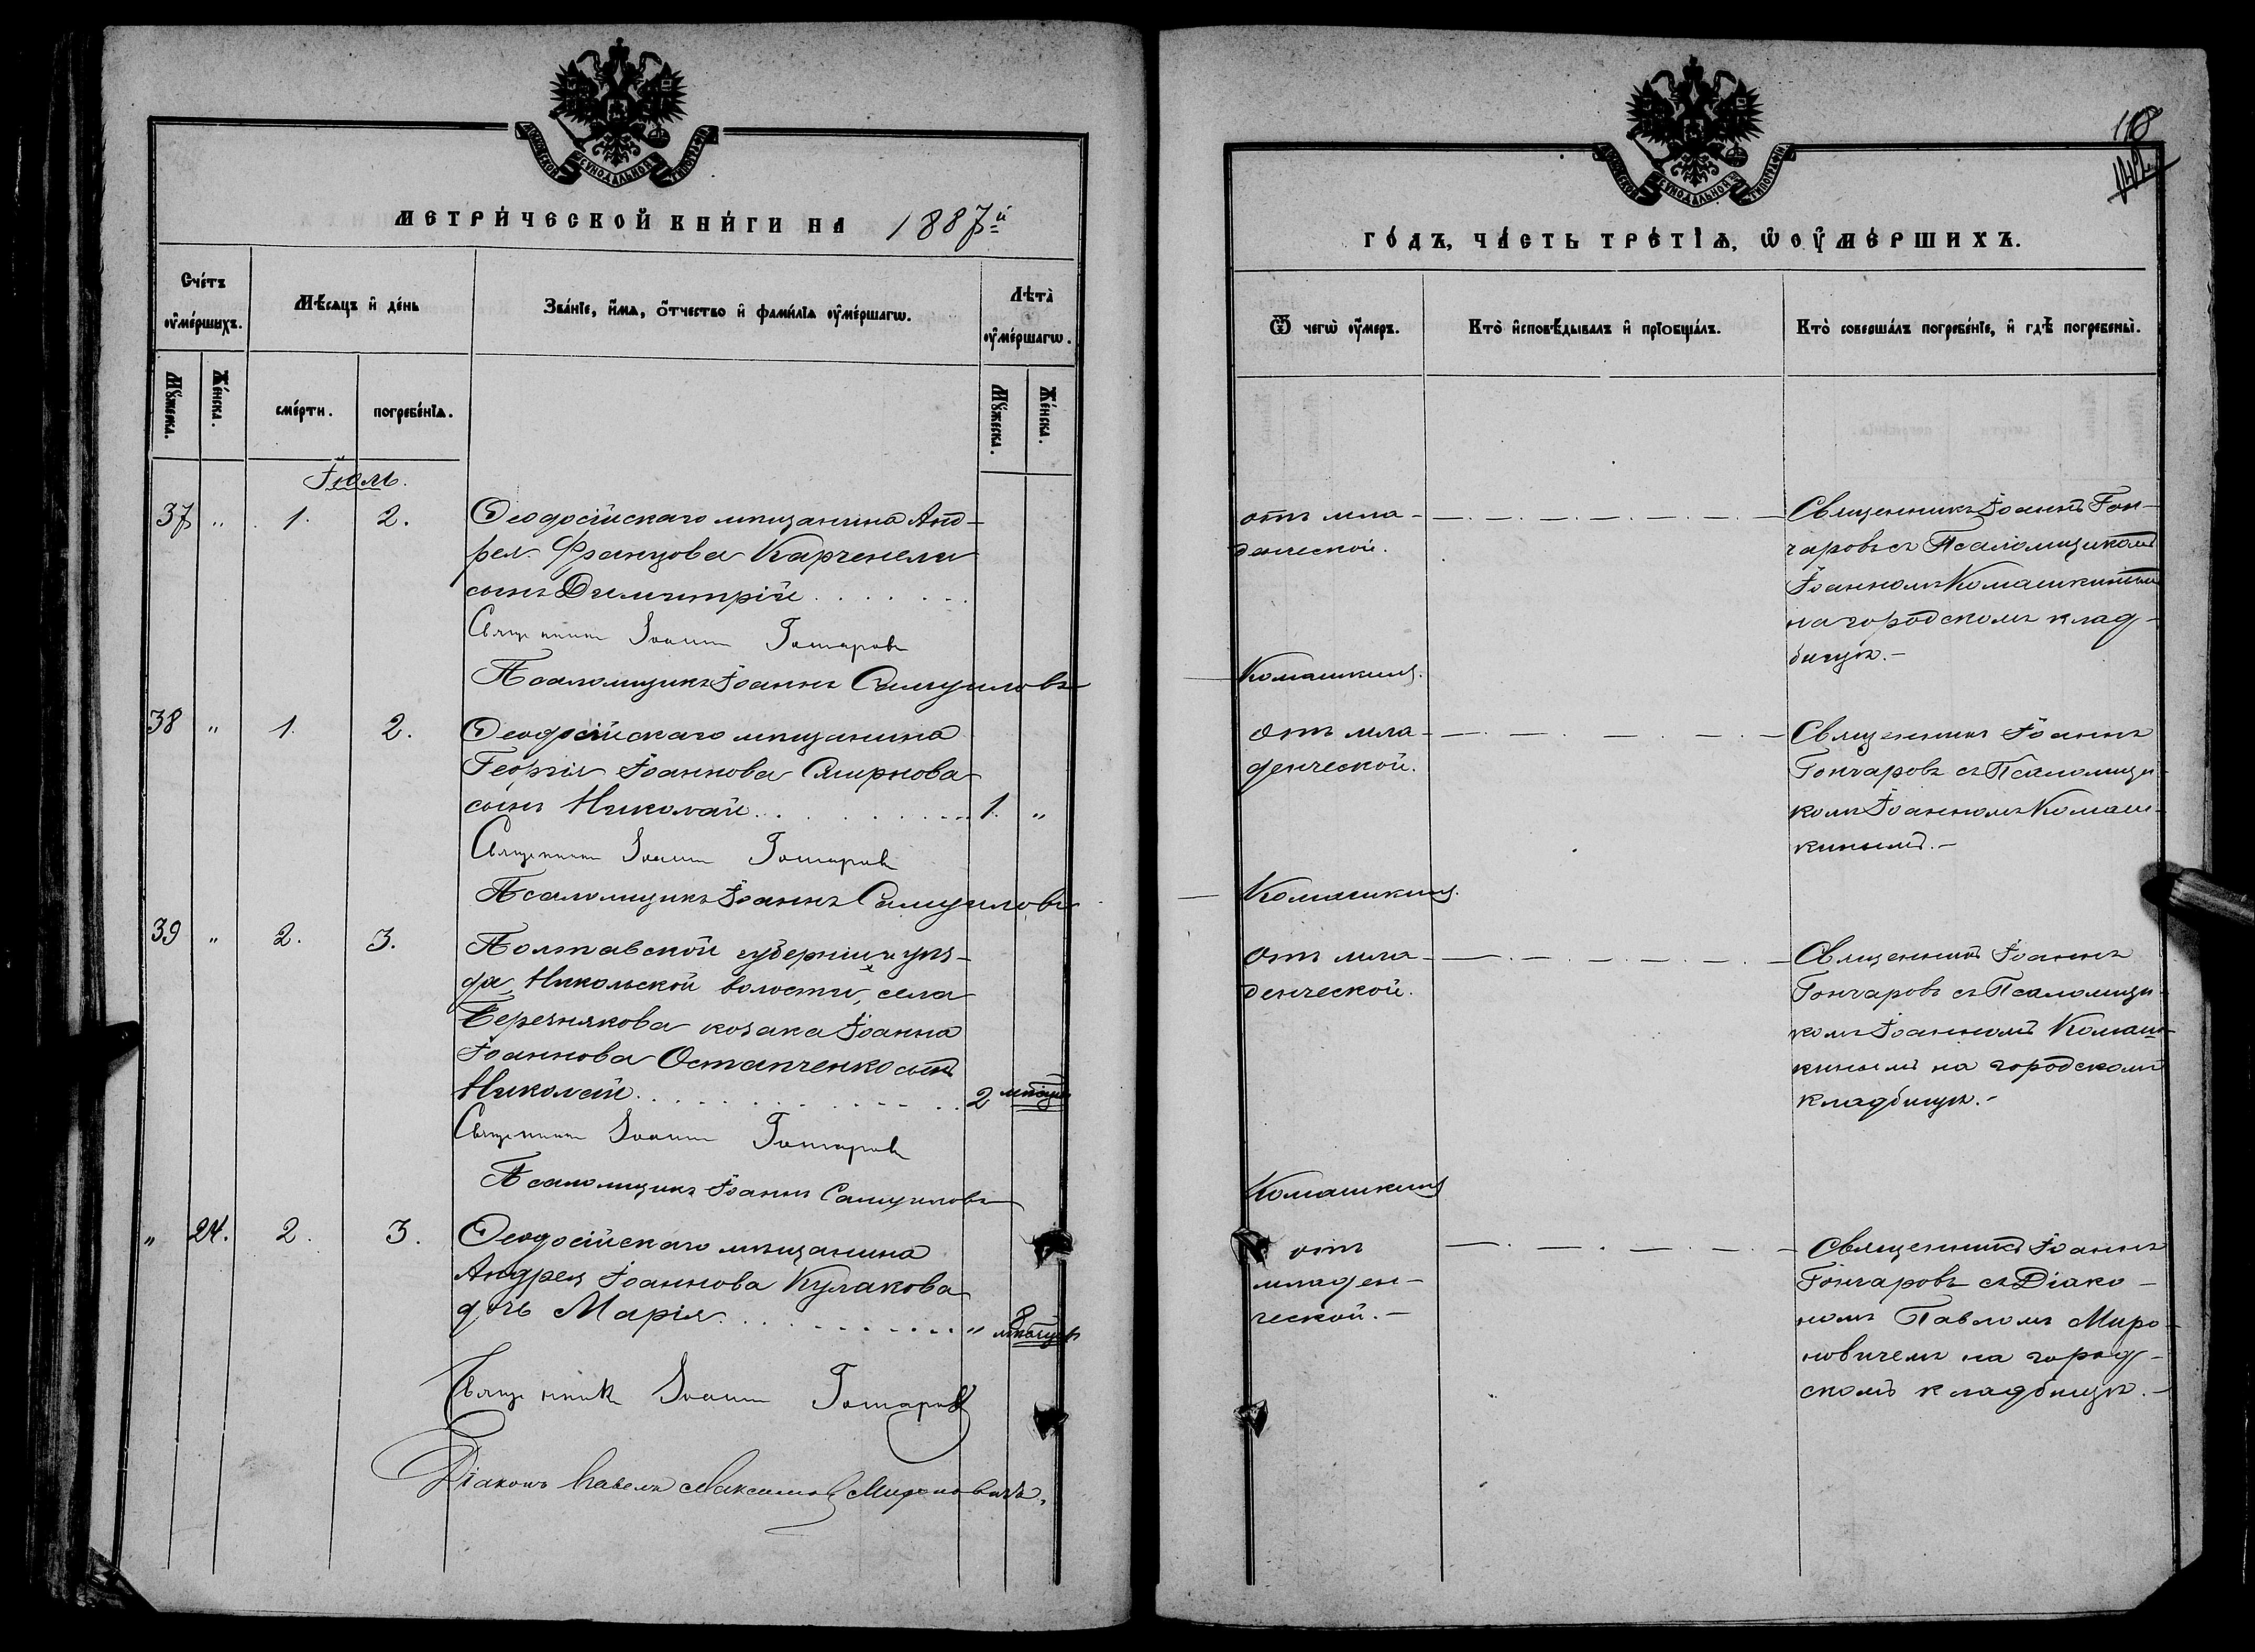 МОСКОВСКОЙ СУНОДАЛЬНОЙ ТИПОГРАФІИ
МЕТРИ́ЧЕСКОЙ КНИ́ГИ НА 1887й
Сче́тъ ᲂу҆ме́ршихъ.
Мѣ́сяцъ и҆ де́нь
Зва́нїе, и҆́мѧ, ѻ҆́тчество и҆ фами́лїѧ ᲂу҆ме́ршагѡ.
Лѣ́та ᲂу҆ме́ршагѡ.
Мꙋ́жеска.
Же́нска.
сме́рти.
погребе́нїѧ.
Мꙋ́жеска.
Же́нска.
Іюль.
37 " 1. 2. Ѳеодосійскаго мѣщанина Анд-
рея Францова Карченели
сынъ Димитрій
Священникъ Іоаннъ Гончаровъ
Псаломщикъ Іоаннъ Самуиловъ
38 " 1. 2. Ѳеодосійскаго мѣщанина
Георгія Іоаннова Смирнова
сынъ Николай 1. "
Священникъ Іоаннъ Гончаровъ
Псаломщикъ Іоаннъ Самуиловъ
39 " 2. 3. Полтавской губерніи и уѣз-
да, Никольской волости, села
Березнякова козака Іоанна
Іоаннова Остапченко сынъ
Николай 2 мѣсяц.
Священникъ Іоаннъ Гончаровъ
Псаломщикъ Іоаннъ Самуиловъ
" 24. 2. 3. Ѳеодосійскаго мѣщанина
Андрея Іоаннова Кулакова
дочь Марія " 8 мѣсяцев
Священникъ Іоаннъ Гончаровъ
Діаконъ Павелъ Максимов Мироновичъ.
118
МОСКОВСКОЙ СУНОДАЛЬНОЙ ТИПОГРАФІИ
ГО́ДЪ, ЧА́СТЬ ТРЕ́ТІѦ, Ѡ ОУ҆МЕ́РШИХЪ.
Ѿ чегѡ̀ ᲂу҆́меръ.
Кто̀ и҆сповѣ́дывалъ и҆ прїѡбща́лъ.
Кто̀ соверша́лъ погребе́нїе, и҆ гдѣ̀ погребены̀.
отъ мла-
денческой.
Священникъ Іоаннъ Гон-
чаровъ съ Псаломщикомъ
Іоанномъ Комашкинымъ
на городскомъ клад-
бищѣ.-
Комашкинъ.
отъ мла-
денческой.
Священникъ Іоаннъ
Гончаровъ съ Псаломщи-
комъ Іоанномъ Комаш-
кинымъ.-
Комашкинъ.
отъ мла-
денческой.
Священникъ Іоаннъ
Гончаровъ съ Псаломщи-
комъ Іоанномъ Комаш-
кинымъ на городскомъ
кладбищѣ.-
Комашкинъ
отъ
младен-
ческой.-
Священникъ Іоаннъ
Гончаровъ съ Діако-
номъ Павломъ Миро-
новичемъ на город-
скомъ кладбищѣ.-